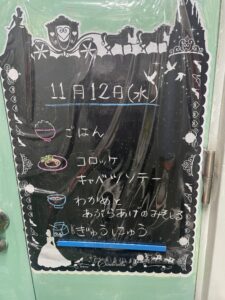 11月12日(水)
ごはん
コロッケ
キャベツソテー
わかめと
あぶらあげのみそしる
ぎゅうにゅう